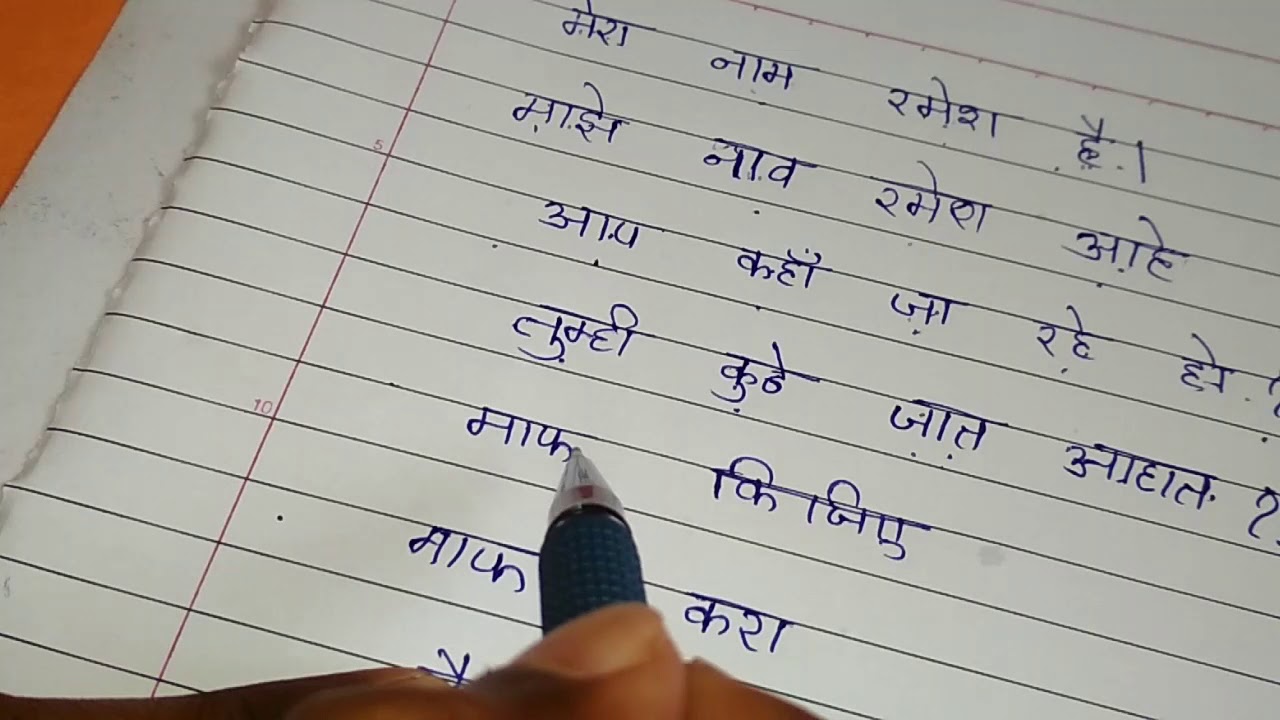 मेरा नाम रमेश है।
माझे नाव रमेश आहे
आप कहाँ जा रहे हो ?
तुम्ही कुठे जात आहात ?
माफ किजिए
माफ करा
5
10